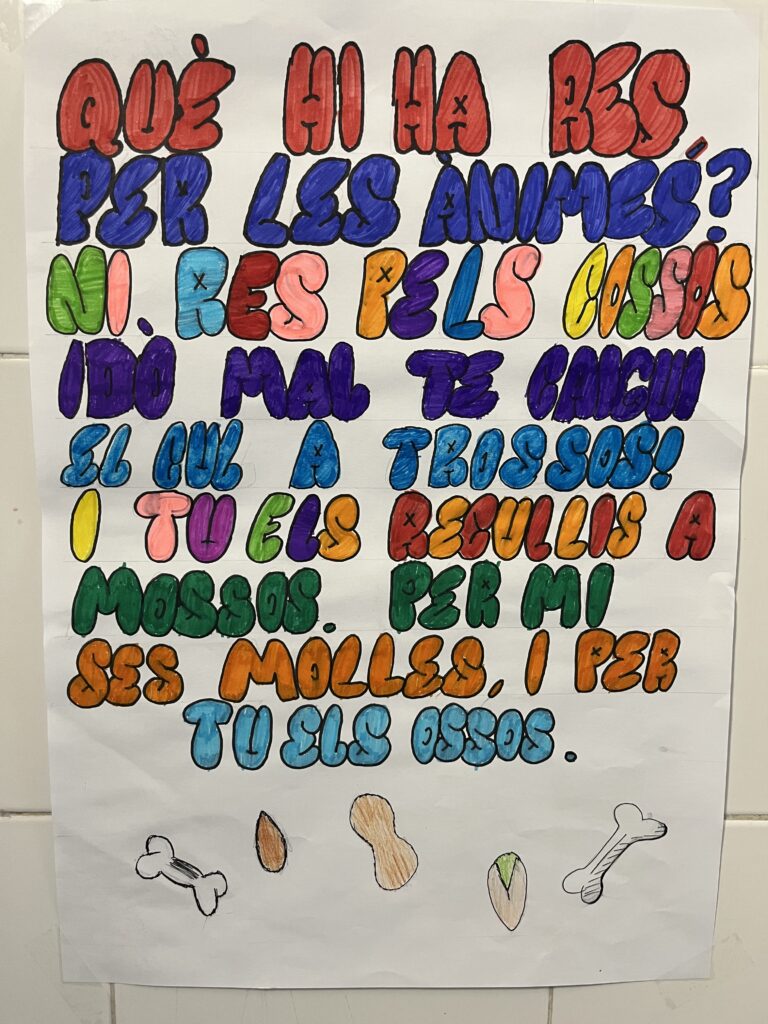 QUÈ HI HA RES
PER LES ÀNIMES?
NI RES PELS COSSOS
IDÒ MAL TE CAIGUI
EL CUL A TROSSOS!
I TU ELS RECULLIS A
MOSSOS. PER MI
SES MOLLES, I PER
TU ELS OSSOS.